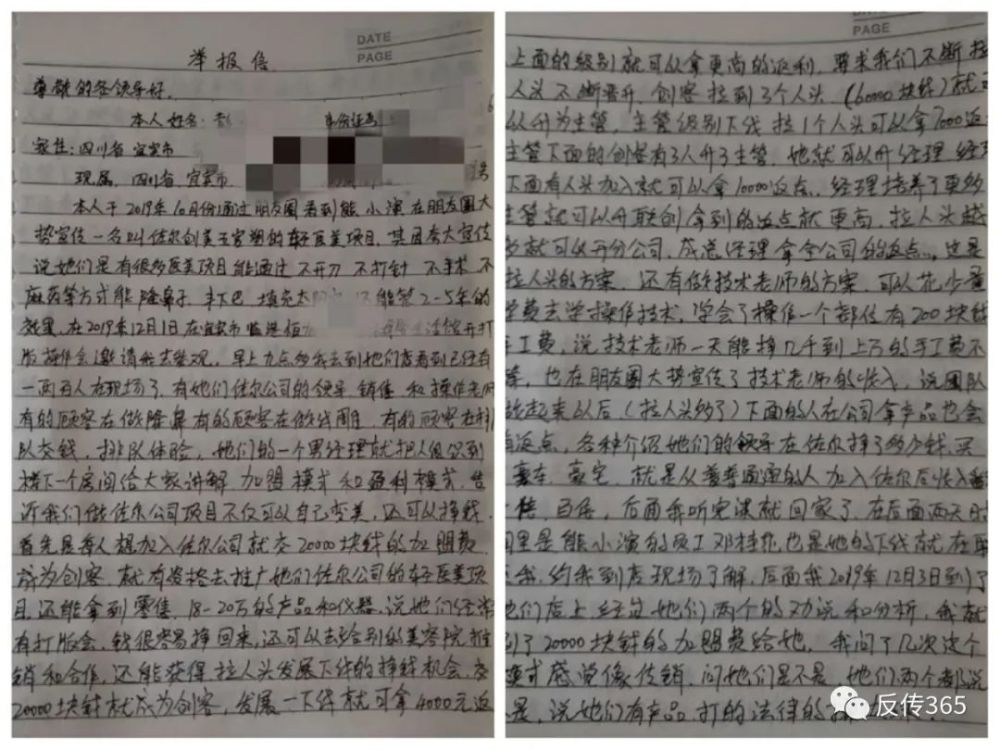 DATE
PAGE
举报信
尊敬的各领导好.
本人姓名: 身份证号
家住:四川省宜宾市
现属,四川省,宜宾市 号
本人于2019年10月份通过朋友圈看到熊小演在朋友圈大
势宣传一名叫佐尔创美王官塑的轻医美项目,其因夸大宣传
说她们是有很多医美项目能通过不开刀不打针不手术不
麻药等方式能隆鼻子丰下巴填充太 能管2-5年的
效果,在2019年12月1日在宜宾市临港佰 生活馆开打
版操作会邀请我去参观,早上九点多我去到她们店看到已经有
一两百人在现场了,有她们佐尔公司的领导销售和操作老师
有的顾客在做隆鼻有的顾客在做线雕,有的顾客在排
队交钱,排队体验,她们的一个男经理就把人组织到
楼下一个房间给大家讲解加盟模式和盈利模式,告
诉我们做佐尔公司项目不仅可以自己变美,还可以挣钱
首先是每人想加入佐尔公司就交20000块钱的加盟费
成为创客就有资格去推广她们佐尔公司的轻医美项
目,还能拿到零售18-20万的产品和仪器,说她们经常
有打版会,钱很容易挣回来,还可以去给别的美容院推
销和合作,还能获得拉人头发展下线的挣钱机会,交
20000块钱就成为创客,发展一下线就可拿4000元返
DATE
PAGE
上面的级别就可以拿更高的返利,要求我们不断拉
人头不断晋升,创客拉到3个人头(60000块钱)就可
以升为主管,主管级别下线拉1个人头可以拿7000返
主管下面的创客有3人升了主管,她就可以升经理,经理
下面有人头加入就可以拿10000返点,经理培养了更多
主管就可以升联创拿到的返点就更高,拉人头越
多就可以开分公司,成总经理拿全公司的返点,这是
拉人头的方案,还有做技术老师的方案,可以花少量
学费去学操作技术,学会了操作一个部位有200块钱
手工费,说技术老师一天能挣几千到上万的手工费不
等,也在朋友圈大势宣传了技术老师的收入,说团队
做起来以后(拉人头够了)下面的人在公司拿产品也会
有返点,各种介绍她们的领导在佐尔挣了多少钱,买
豪车,豪宅,就是从普普通通的人加入佐尔后收入翻
倍,百倍,后面我听完课就回家了,在后面两天时
间里是熊小演的员工邓 也是她的下线就在联
系我,约我到店现场了解,后面我2019年12月3日到了
她们店上经过她们两个的劝说和分析,我就
了20000块钱的加盟费给她,我问了几次这个
模式感觉像传销,问她们是不是,她们两个都说
不是,说她们有产品,打的法律的
反传365